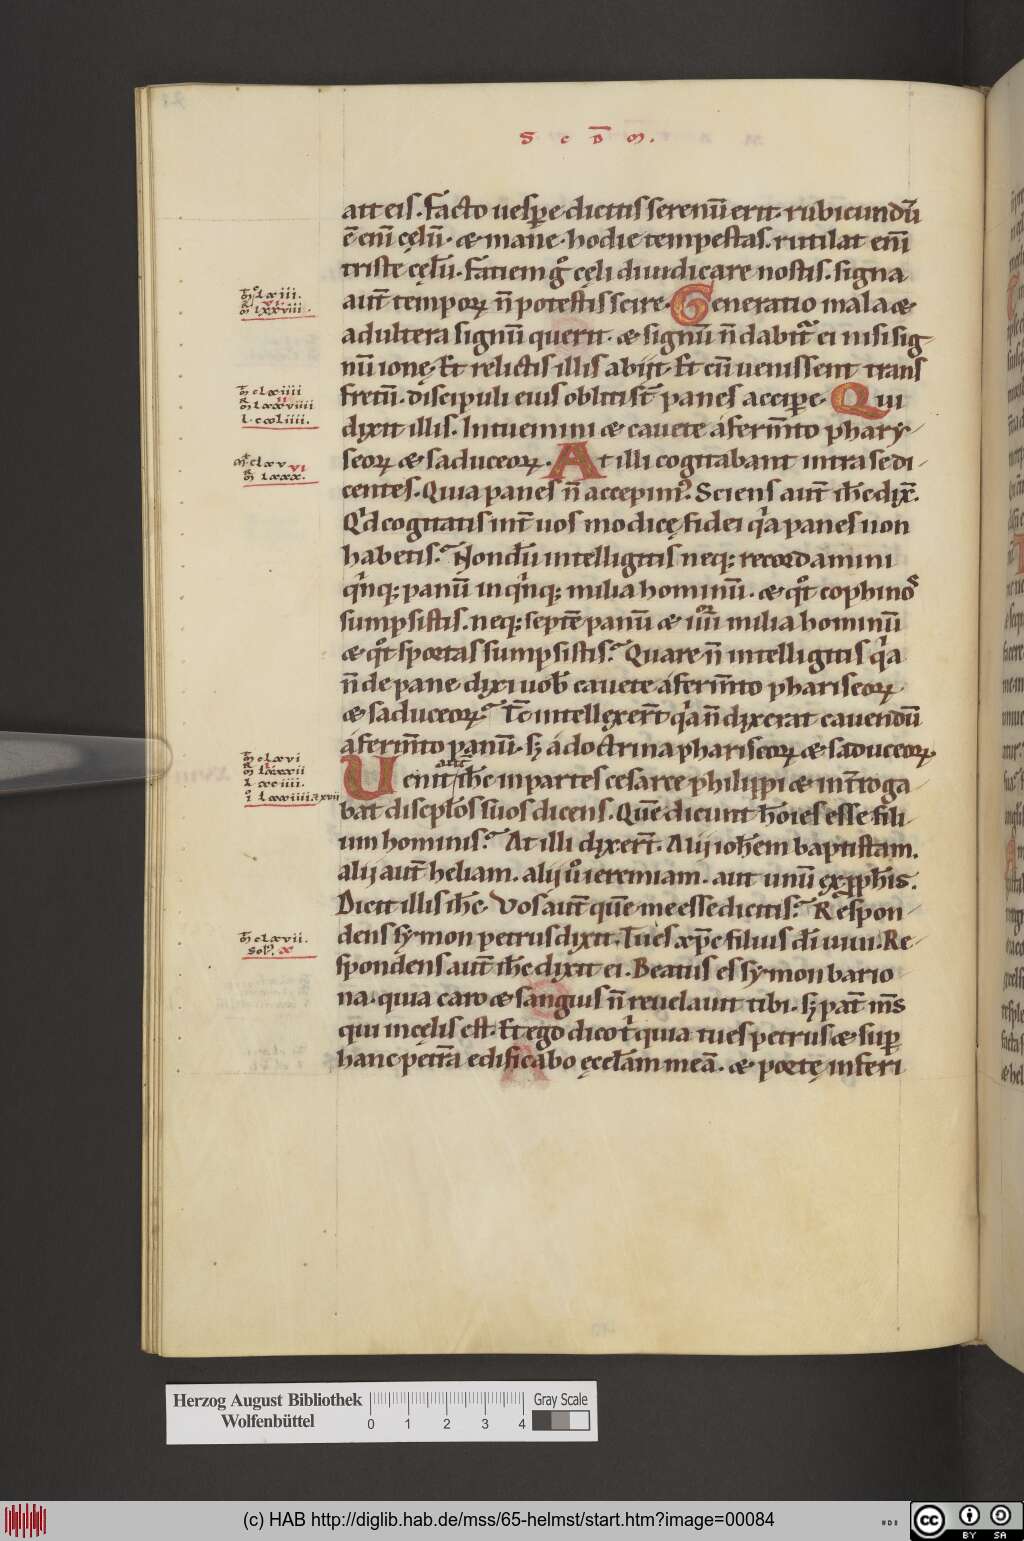 S c D m.
ait eis. Facto uesp̱e dicitis serenū erit. rubicundū
ē eni̅ cęlū. & mane. hodie tempestas. rutilat eni̅
triste cęlū. Faciem gͦ cęli diiudicare nostis. signa
aut̅ temporꝝ n̅ potestis scire. Generatio mala &
adultera signū querit. & signū n̅ dabit̅ ei nisi sig
nū ionę. Et relictis illis abijt. Et cū uenissent trans
fretū. discipuli eius obliti st̅ panes accip̱e. Qui
dixit illis. Intuemini & cauete á ferm̅to phary-
seoꝝ & saduceoꝝ. At illi cogitabant intra se di-
centes. Quia panes n̅ accepimꝰ. Sciens aut̅ ih̅c dix̅.
Qͥd cogitatis int̅ uos modicę fidei qͥa panes non
habetis. Nondū intelligitis neq; recordamini
qͥnq; panū in qͥnq; milia hominū. & qͦt cophinoˢ
sumpsistis. neq; septē panū & iiiiͦʳ milia hominū
& qͦt sportas sumpsistis. Quare n̅ intelligitis qͥa
n̅ de pane dixi uob̅ cauete á ferm̅to phariseoꝝ
& saduceoꝝ. Tc̅ intellexer̅t qͥa n̅ dixerat cauendū
á ferm̅to panū. sꝫ á doctrina phariseoꝝ & saduceoꝝ.
Uenit aut̅ ih̅c in partes cesaree philippi & int̅roga
bat discip̅los suos dicens. Que̅ dicunt ho̅ies esse fili-
um hominis. At illi dixer̅t. Alij ioh̅em baptistam.
alij aut̅ heliam. alij uͦ ieremiam. aut unū ex ꝓph̅is.
Dicit illis ih̅c. Vos aut̅ que̅ me esse dicitis. Respon-
dens symon petrus dixit. Tu es xp̅c filius di̅ uiui. Re-
spondens aut̅ ih̅c dixit ei. Beatus es symon bario
na. quia caro & sangius n̅ reuelauit tibi. sꝫ pat̅ m̅s
qui in cęlis est. Et ego dico tͥ quia tu es petrus & sup̱
hanc petrā edificabo ęccl̅am meā. & portę inferi
m̅ clxiiii
l. ccliiii.
m̅ clxv
R m lxxx. vi
m̅ clxvi
m̅ clxvii.
sol'. x
Herzog August Bibliothek
Wolfenbüttel
0 1 2 3 4
Gray Scale
(c) HAB http://diglib.hab.de/mss/65-helmst/start.htm?image=00084
cc BY SA